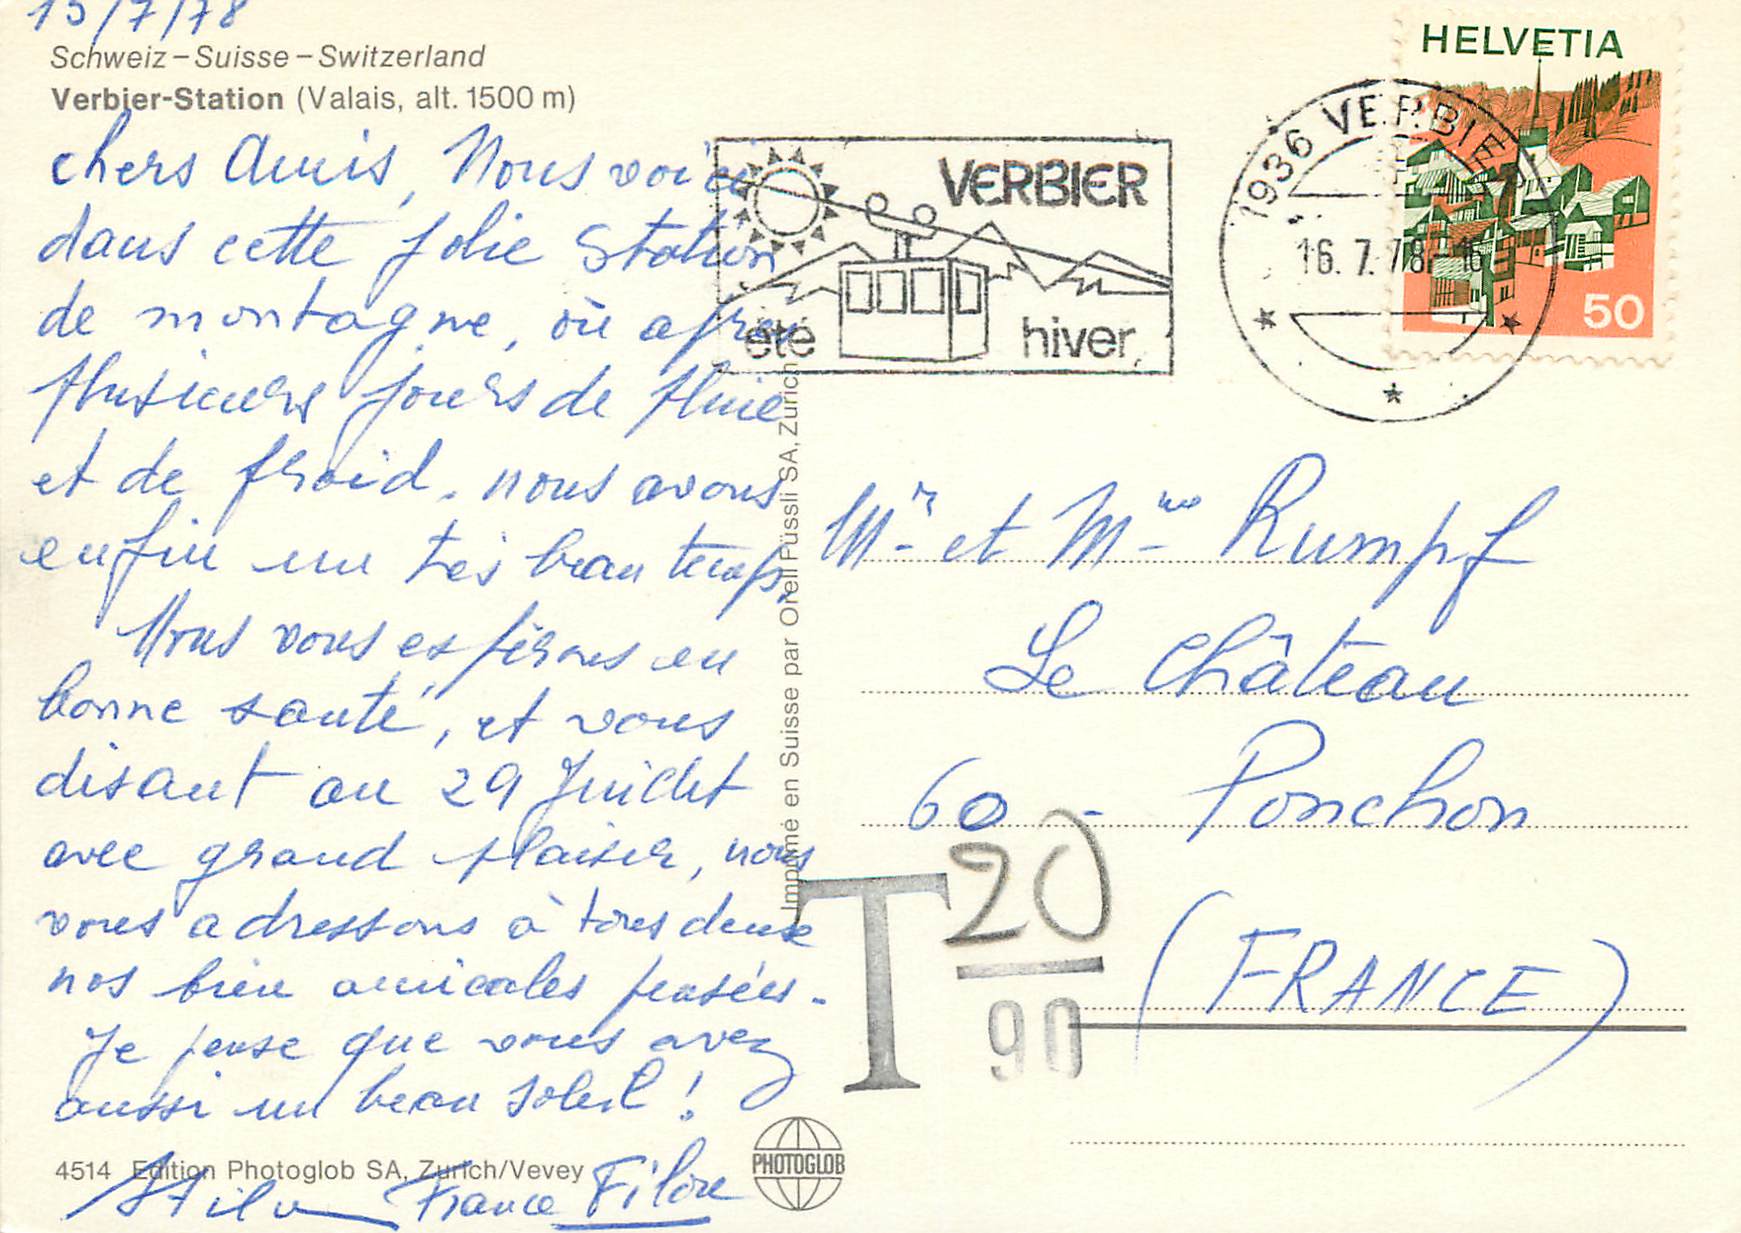 15/7/78
Schweiz – Suisse – Switzerland
Verbier-Station (Valais, alt. 1500 m)
chers Amis, Nous voici
dans cette jolie station
de montagne, où après
plusieurs jours de pluie
et de froid, nous avons
enfin un très beau temps,
Nous vous espérons en
bonne santé, et vous
disant au 29 Juillet
avec grand plaisir, nous
vous adressons à tous deux
nos bien amicales pensées.
Je pense que vous avez
aussi un beau soleil !
4514 Edition Photoglob SA, Zurich/Vevey
France
PHOTOGLOB
Imprimé en Suisse par Orell Füssli SA, Zurich
VERBIER
été hiver
1936 VERBIER
16. 7. 78 - 16
HELVETIA
50
Mr et Mme Rumpf
Le Château
60 - Ponchon
(FRANCE)
T 20
90